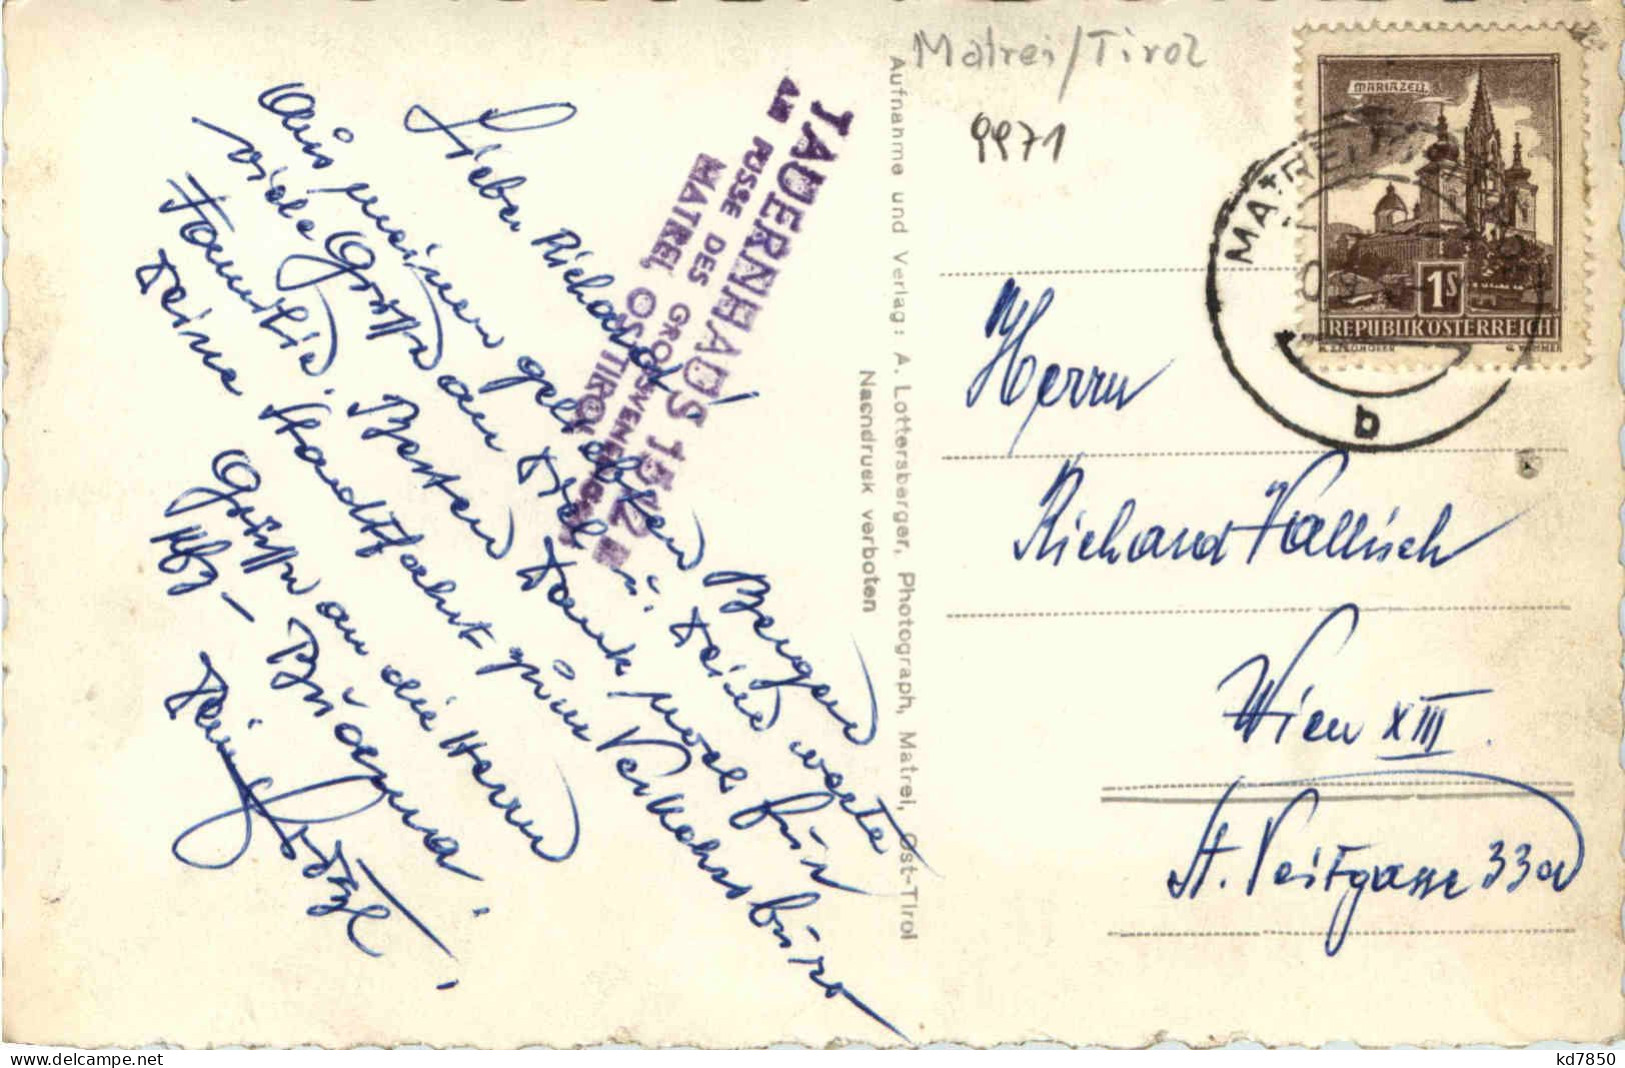 Matrei/Tirol
9971
MARIAZELL
1S
REPUBLIK ÖSTERREICH
MATREI
b
TAUERNHAUS 1512 m
AM FUSSE DES GROSSVENEDIGERS
MATREI, OSTTIROL
Lieber Richard!
Aus meinen geliebten Bergen
viele Grüße an Dich u. Deine werte
Familie. Besten Dank noch für
Deine Stadtfahrt zum Verkehrsbüro
Grüße an die Herrn
Abg - Büdama!
Dein
Aufnahme und Verlag: A. Lottersberger, Photograph, Matrei, Ost-Tirol
Nachdruck verboten
Herrn
Richard Wallisch
Wien XIII.
St. Veitgasse 33a
kd7850